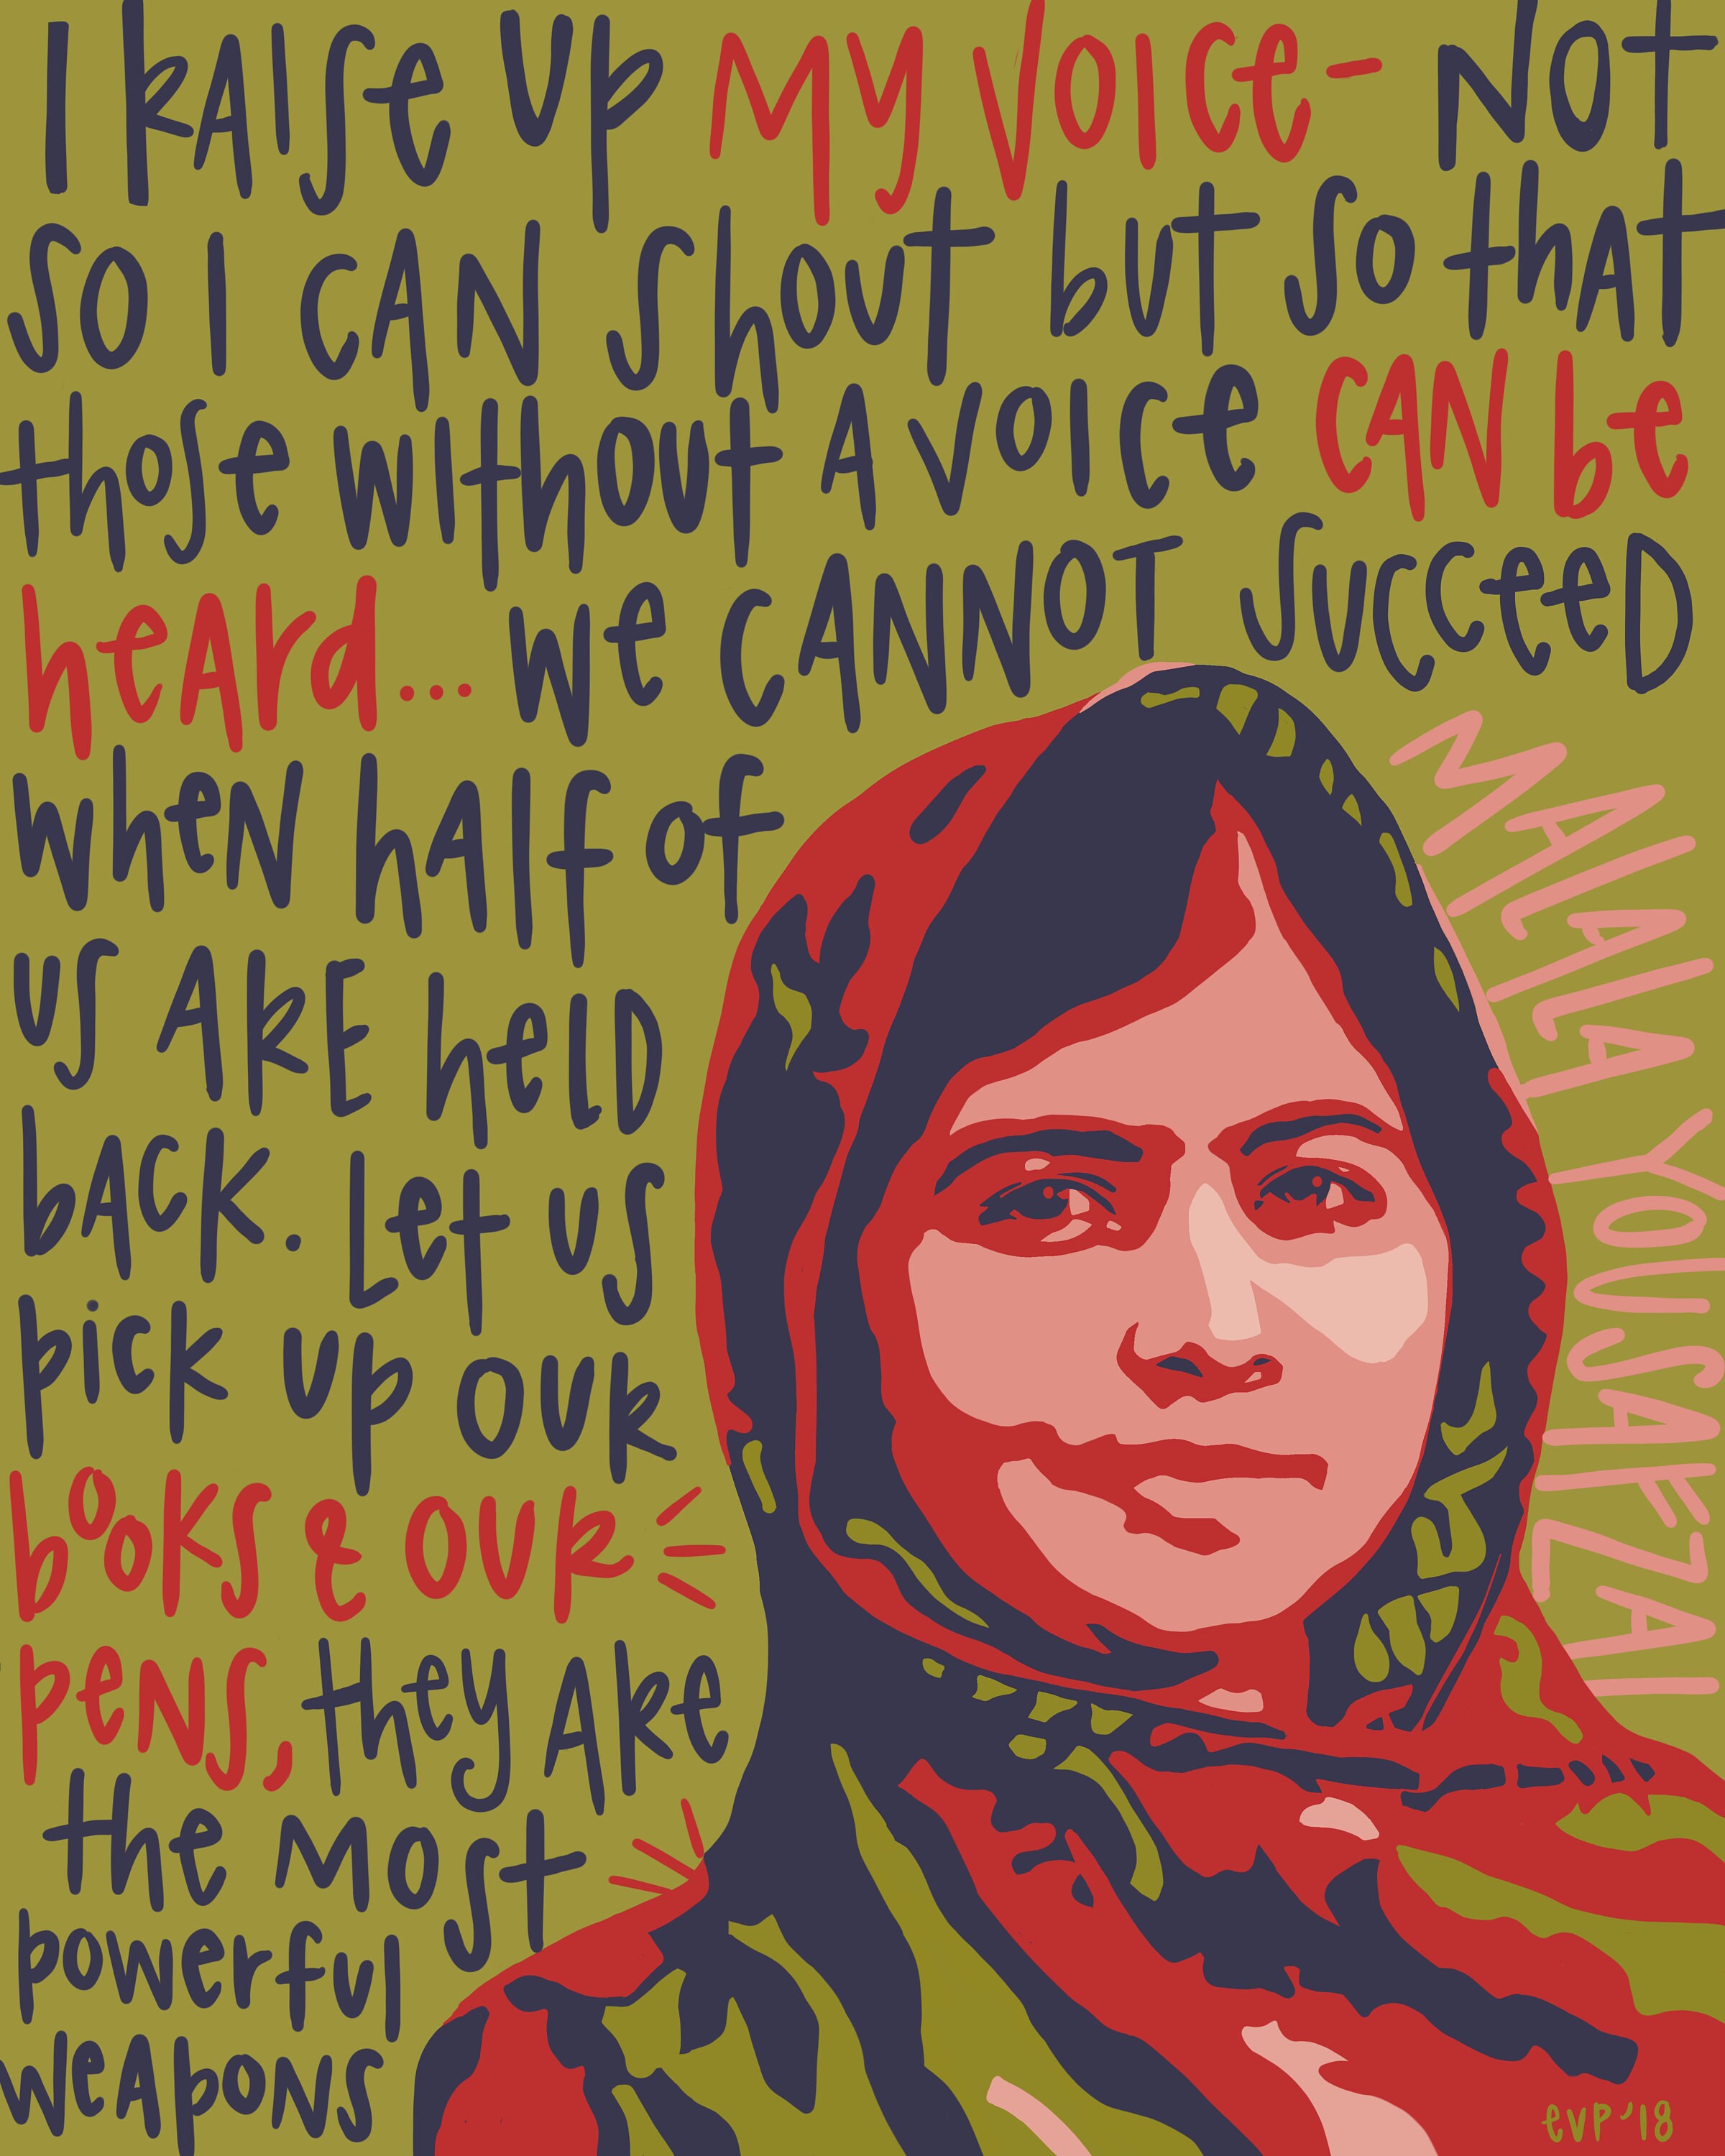 I RAISe UP My VOICe- NOt
SO I CAN ShOUt but So thAt
thOSe WIthOut A VOICe CAN be
heArd... We CANNOT SUCCeeD
WheN hALf of
US ARE heLD
bACK. Let US
pick up OUR
boOKS & OUR
peNS, they ARe
the MOSt
powerfUl
weApONS
MALALA YOUSAFZAI
evp '18